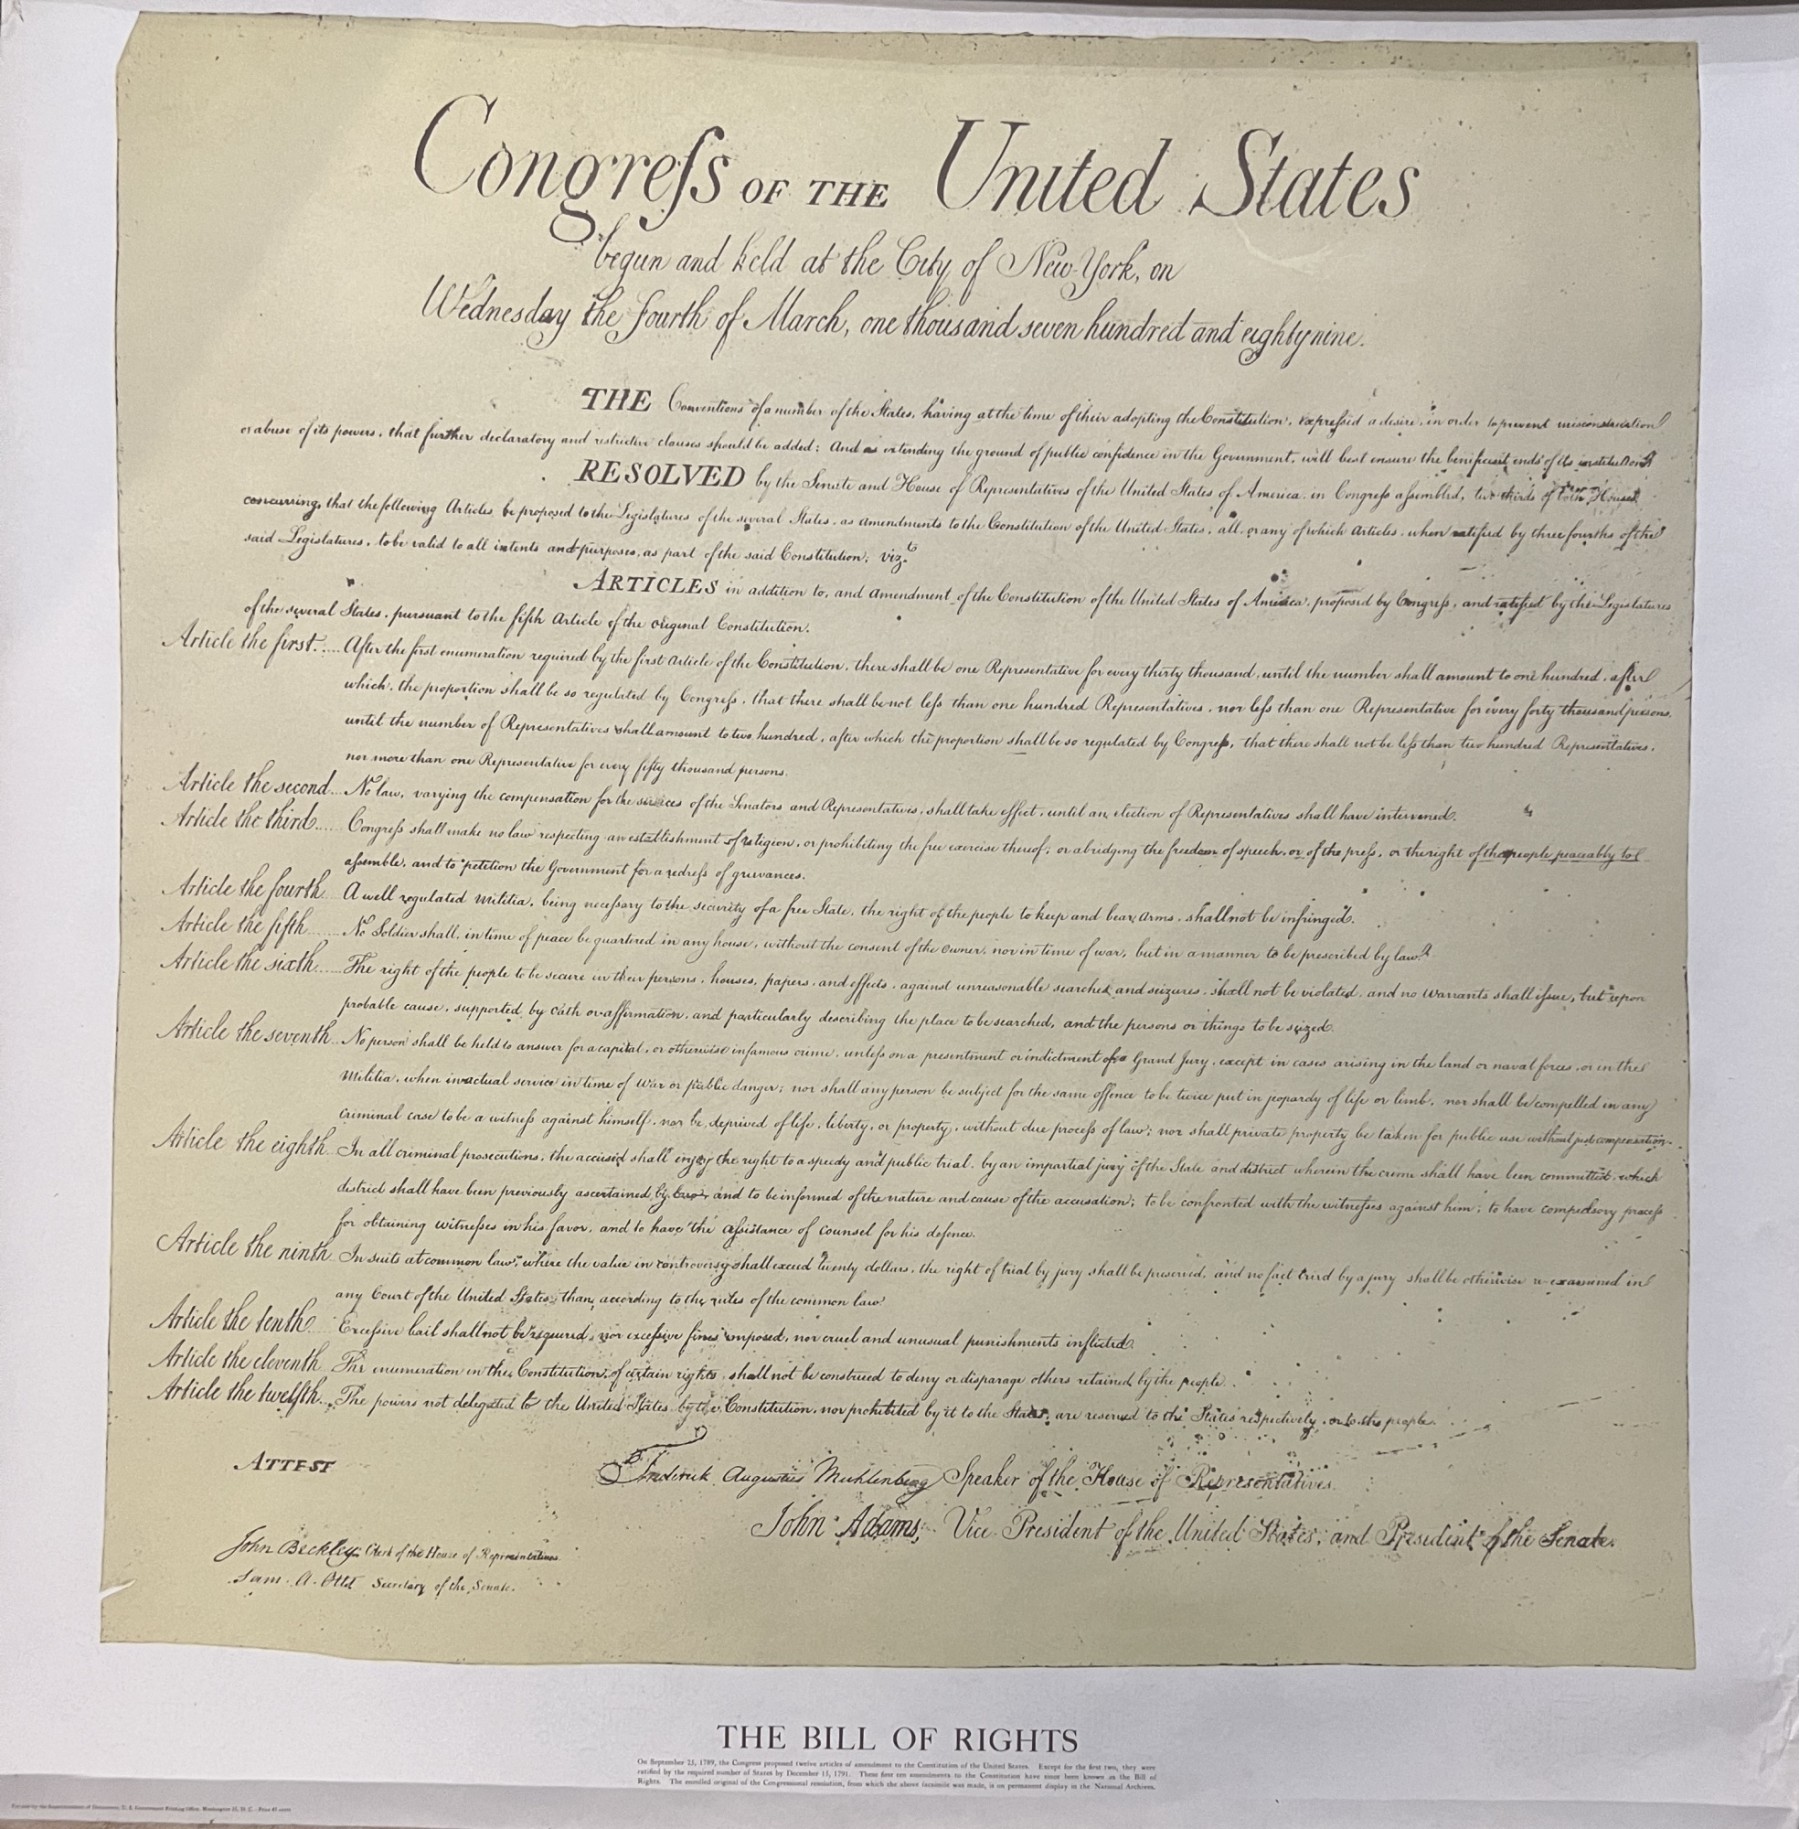 Congreſs OF THE United States
begun and held at the City of New-York, on
Wednesday the fourth of March, one thousand seven hundred and eighty nine.
THE Conventions of a number of the States, having at the time of their adopting the Constitution, expreſsed a desire, in order to prevent misconstruction
or abuse of its powers, that further declaratory and restrictive clauses should be added: And as extending the ground of public confidence in the Government, will best ensure the beneficent ends of its institution
RESOLVED by the Senate and House of Representatives of the United States of America, in Congreſs aſsembled, two thirds of both Houses
concurring, that the following Articles be proposed to the Legislatures of the several States, as amendments to the Constitution of the United States, all, or any of which Articles, when ratified by three fourths of the
said Legislatures, to be valid to all intents and purposes, as part of the said Constitution; viz.t
ARTICLES in addition to, and amendment of the Constitution of the United States of America, proposed by Congreſs, and ratified by the Legislatures
of the several States, pursuant to the fifth Article of the original Constitution.
Article the first..... After the first enumeration required by the first Article of the Constitution, there shall be one Representative for every thirty thousand, until the number shall amount to one hundred, after
which, the proportion shall be so regulated by Congreſs, that there shall be not leſs than one hundred Representatives, nor leſs than one Representative for every forty thousand persons,
until the number of Representatives shall amount to two hundred, after which the proportion shall be so regulated by Congreſs, that there shall not be leſs than two hundred Representatives,
nor more than one Representative for every fifty thousand persons.
Article the second... No law, varying the compensation for the services of the Senators and Representatives, shall take effect, until an election of Representatives shall have intervened.
Article the third...... Congreſs shall make no law respecting an establishment of religion, or prohibiting the free exercise thereof; or abridging the freedom of speech, or of the preſs, or the right of the people peaceably to
aſsemble, and to petition the Government for a redreſs of grievances.
Article the fourth... A well regulated Militia, being neceſsary to the security of a free State, the right of the people to keep and bear Arms, shall not be infringed.
Article the fifth...... No Soldier shall, in time of peace be quartered in any house, without the consent of the Owner, nor in time of war, but in a manner to be prescribed by law.
Article the sixth...... The right of the people to be secure in their persons, houses, papers, and effects, against unreasonable searches and seizures, shall not be violated, and no Warrants shall iſsue, but upon
probable cause, supported by Oath or affirmation, and particularly describing the place to be searched, and the persons or things to be seized.
Article the seventh.. No person shall be held to answer for a capital, or otherwise infamous crime, unleſs on a presentment or indictment of a Grand Jury, except in cases arising in the land or naval forces, or in the
Militia, when in actual service in time of War or public danger; nor shall any person be subject for the same offence to be twice put in jeopardy of life or limb, nor shall be compelled in any
criminal case to be a witneſs against himself, nor be deprived of life, liberty, or property, without due proceſs of law; nor shall private property be taken for public use without just compensation.
Article the eighth... In all criminal prosecutions, the accused shall enjoy the right to a speedy and public trial, by an impartial jury of the State and district wherein the crime shall have been committed, which
district shall have been previously ascertained by law, and to be informed of the nature and cause of the accusation; to be confronted with the witneſses against him; to have compulsory proceſs
for obtaining witneſses in his favor, and to have the aſsistance of counsel for his defence.
Article the ninth... In suits at common law, where the value in controversy shall exceed twenty dollars, the right of trial by jury shall be preserved, and no fact tried by a jury shall be otherwise re-examined in
any Court of the United States, than according to the rules of the common law.
Article the tenth... Exceſsive bail shall not be required, nor exceſsive fines imposed, nor cruel and unusual punishments inflicted.
Article the eleventh.. The enumeration in the Constitution, of certain rights, shall not be construed to deny or disparage others retained by the people.
Article the twelfth... The powers not delegated to the United States by the Constitution, nor prohibited by it to the States, are reserved to the States respectively, or to the people.
ATTEST
Frederick Augustus Muhlenberg Speaker of the House of Representatives.
John Adams, Vice President of the United States, and President of the Senate.
John Beckley, Clerk of the House of Representatives.
Sam. A. Otis Secretary of the Senate.
THE BILL OF RIGHTS
On September 25, 1789, the Congress proposed twelve articles of amendment to the Constitution of the United States. Except for the first two, they were
ratified by the required number of States by December 15, 1791. These first ten amendments to the Constitution have since been known as the Bill of
Rights. The enrolled original of the Congressional resolution, from which the above facsimile was made, is on permanent display in the National Archives.
For sale by the Superintendent of Documents, U. S. Government Printing Office, Washington 25, D. C. - Price 45 cents